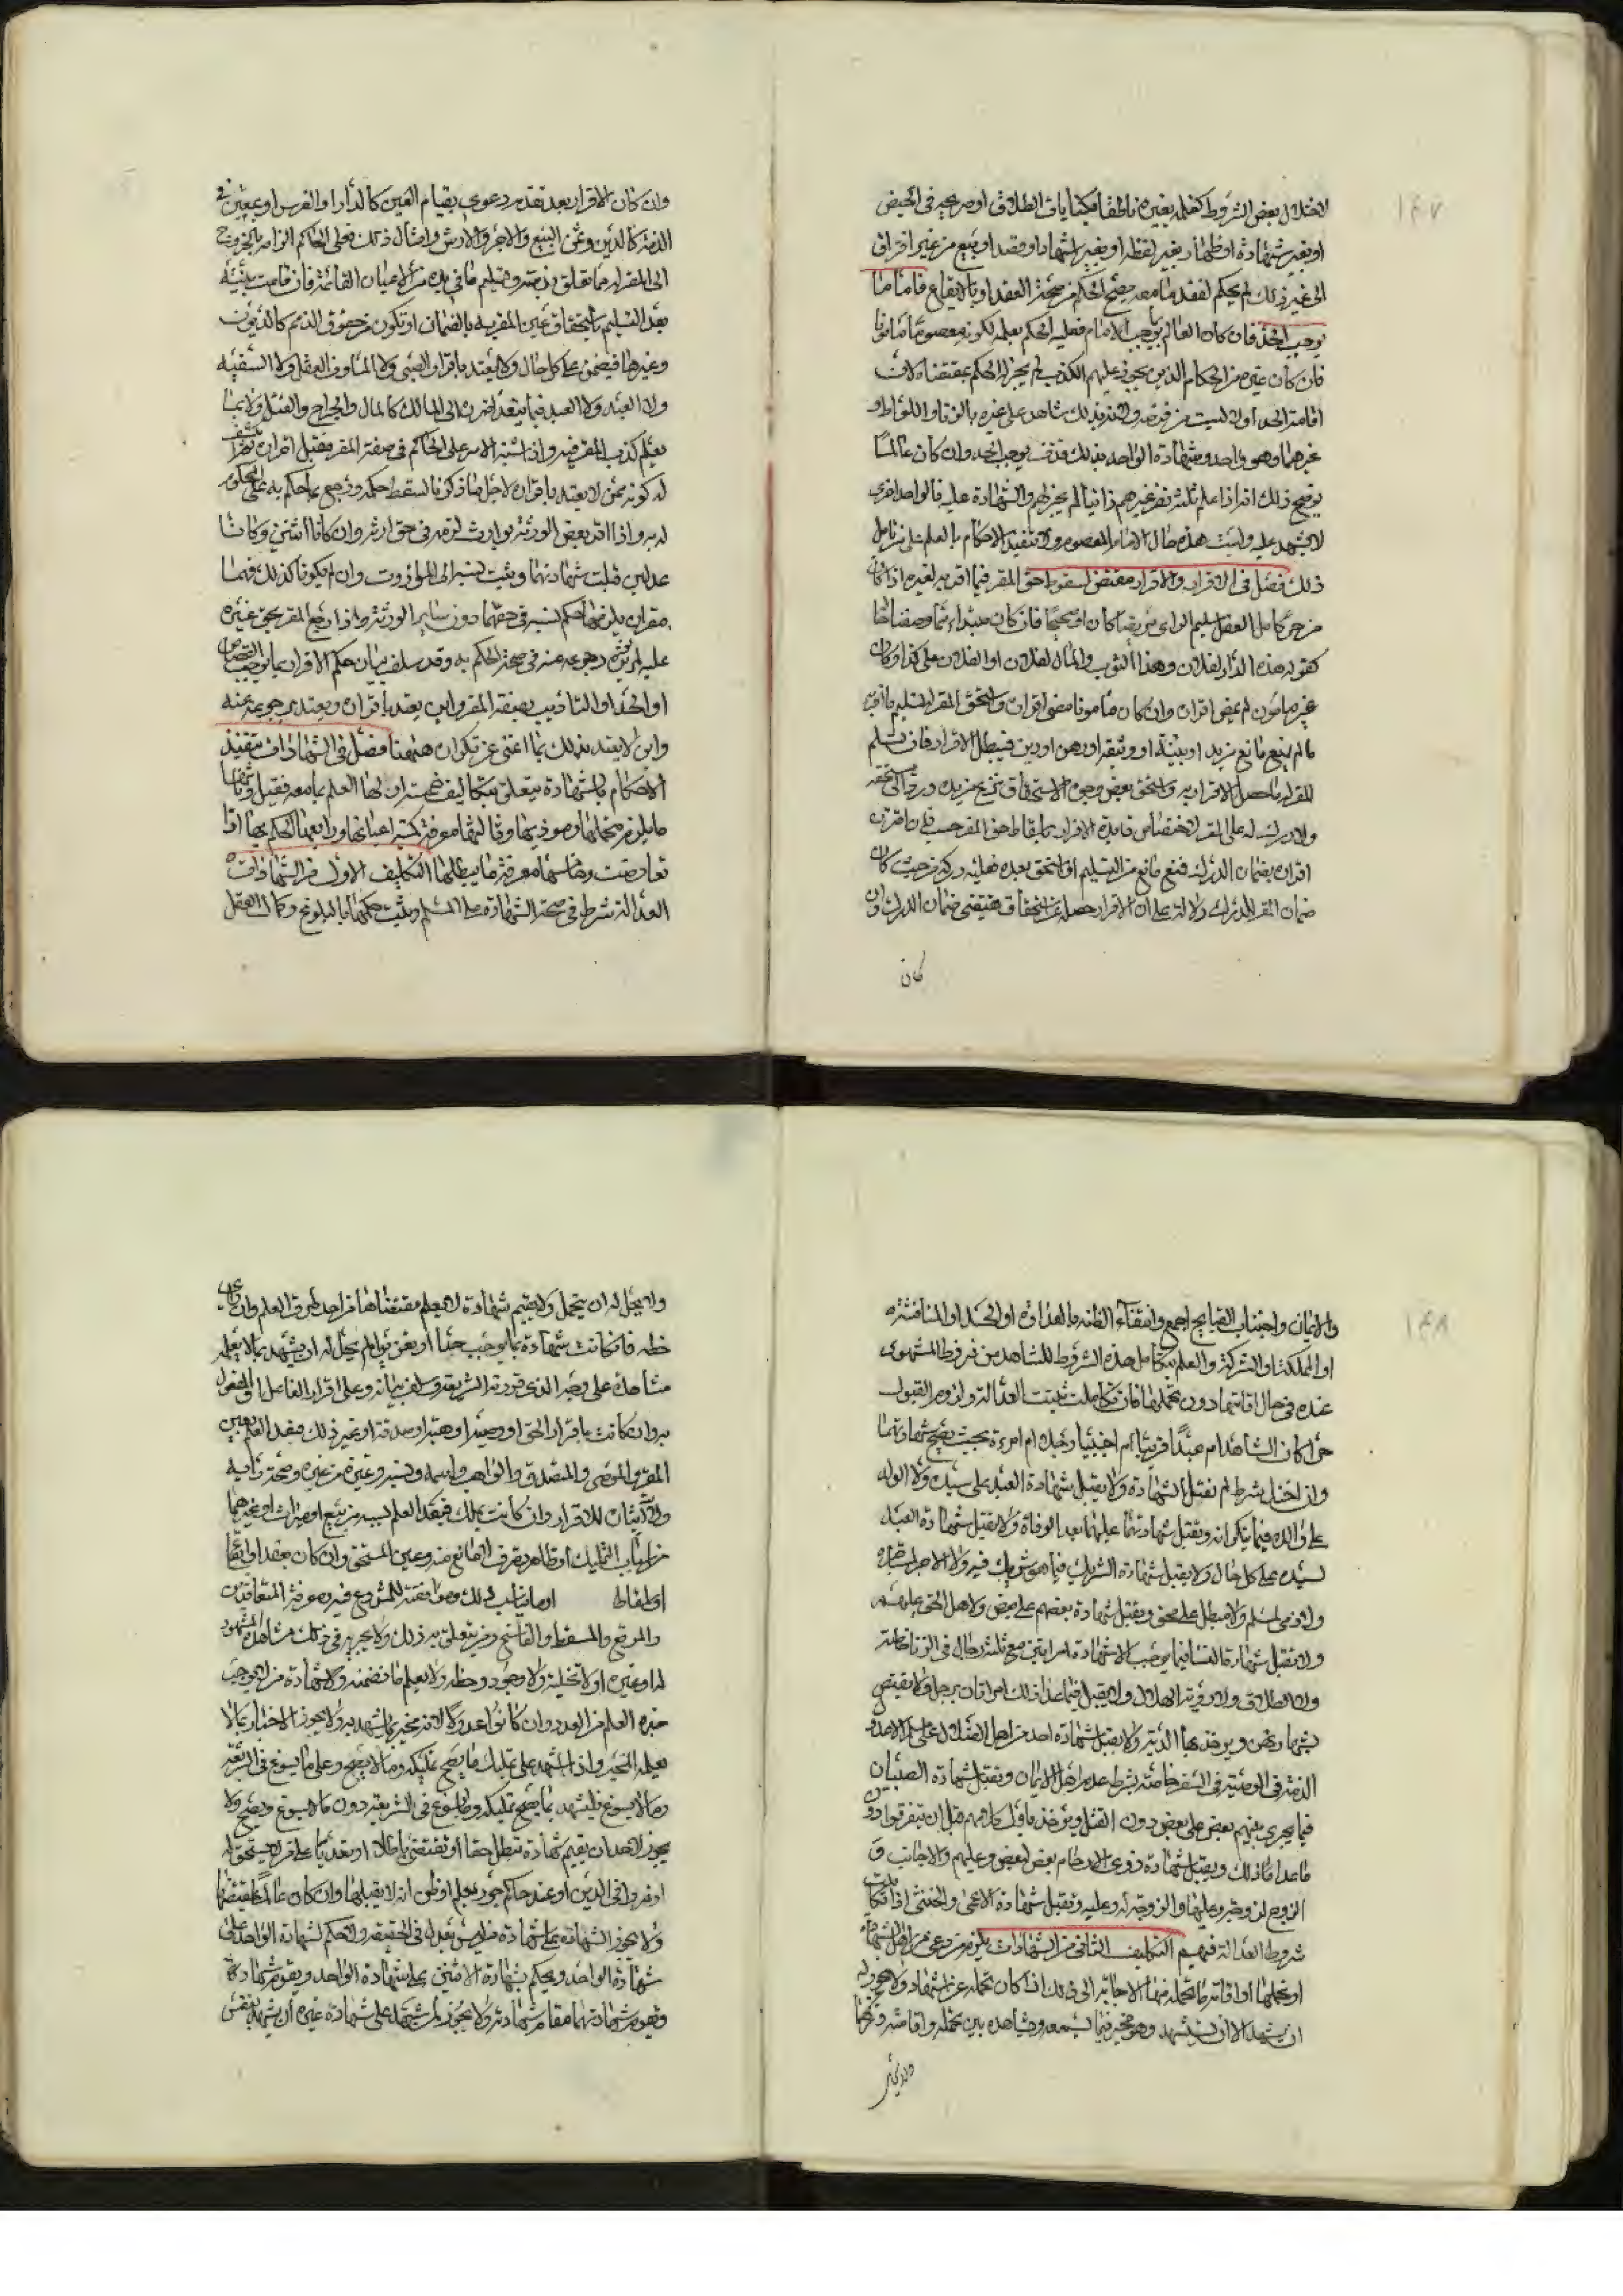 ١٤٧
لاختلال بعض الشروط كفعله بغيره ناطقا بكنايات الطلاق او صريحه في الحيض
او بغير شهادة او ظهار بغير لفظه او بغير اشهاد او قصد او بيع من غير افتراق
الى غير ذلك لم يحكم لفقد ما معه يصح الحكم من صحة العقد او بالايقاع فاما ما
يوجب الحد فان كان العالم بما يوجبه الامام فعليه الحكم بعلمه لكونه معصوما مامونا
فان كان غيره من الحكام الذين يجوز عليهم الكذب لم يجز له الحكم بمقتضاه لان
اقامة الحد اولا ليست من فرضه ولانه بذلك شاهد على غيره بالزنا او اللواط او
غيرهما وهو واحد وشهادة الواحد بذلك قذف يوجب الحد وان كان عالما
يوضح ذلك انه اذا علم ثلثة نفر غيرهم زانيا لم يجز لهم الشهادة عليه فالواحد احرى
لا يشهد عليه وليست هذه حال الامام المعصوم في تنفيذ الاحكام بالعلم على من تامل
ذلك فصل في الاقرار والاقرار مقتض لسقوط حق المقر فيما اقر به لغيره اذا كان
من حر كامل العقل سليم الراى مريضا كان او صحيحا فان كان مبتداء
كقوله هذه الدار لفلان وهذا الثوب والمال لفلان او لفلان على كذا وكان
غير مامون لم يمض اقراره وان كان مامونا مضى اقراره واستحق المقر له تسليم ما اقر به
ما لم يمنع مانع من يد او بينة او وثيقة او رهن او دين فيبطل الاقرار فان تسلم
المقر له ما حصل الاقرار به واستحق ببعض وجوه الاستحقاق نزع من يده ورد الى مستحقه
ولا درك له على المقر لاختصاص فايدة الاقرار باسقاط حق المقر حسب فان اقترن
اقراره بضمان الدرك فمنع مانع من التسليم او استحق بعده فعليه دركه من حيث كان
ضمان المقر للدرك دلالة على ان الاقرار حصل عن استحقاق يقتضى ضمان الدرك وان
كان
وان كان الاقرار بعد تقدم دعوى بقيام العين كالدار او الفرس او بمعين في
الذمة كالدين وثمن البيع والاجر والارش وامثال ذلك فعلى الحاكم الزامه بالخروج
الى المقر له مما تعلق بذمته وتسليم ما في يده من الاعيان القائمة فان قامت بينة
بعد التسليم باستحقاق عين المقر به بالضمان او تكون من حقوق الذمم كالديون
وغيرها فيضمن على كل حال ولا يعتد باقرار الصبى ولا الماوف العقل ولا السفيه
ولا العبد فيما يتعدى ضرره الى المالك كالمال والجراح والقتل ولا بما
يعلم كذب المقر فيه واذا اشتبه الامر على الحاكم في صفة المقر فقبل اقراره ثم انكشف
له كونه ممن لا يعتد باقراره لاجل ما ذكرنا سقط حكمه ورجع بما حكم به على المحكوم
له به واذا اقر بعض الورثة بوارث لزمه في حق ارثه وان كانا اثنين وكانا
عدلين قبلت شهادتهما وثبت نسبه الى الموروث وان لم يكونا كذلك فهما
مقران يلزمهما حكم نسبه في حقهما دون ساير الورثة واذا رجع المقر بحق غيره
عليه لم يؤثر رجوعه عنه في صحة الحكم به وقد سلف بيان حكم الاقرار بما يوجب القصاص
او الحد او التاديب وصفة المقر واين يعتد باقراره ويعتد برجوعه عنه
واين لا يعتد بذلك بما اغنى عن تكراره هيهنا فصل في الشهادات تنفيذ
الاحكام بالشهادة يتعلق بتكاليف خمسة اولها العلم بما معه تقبل وثانيها
ما يلزم متحملها ومؤديها وثالثها معرفة كيفية اعيانها ورابعها الحكم بها اذا
تعارضت وخامسها معرفة ما يبطلها التكليف الاول من الشهادات
العدالة شرط في صحة الشهادة على المسلم ويثبت حكمها بالبلوغ وكمال العقل
١٤٨
والايمان واجتناب القبايح اجمع وانتفاء الظنة بالعداوة او الحسد او المنافسة
او المملكة او الشركة والعلم بتكامل هذه الشروط للشاهد من شروط المشهود
عنده في حال اقامتها دون تحملها فان تكاملت ثبتت العدالة ولزم القبول
حرا كان الشاهد ام عبدا قريبا ام اجنبيا رجل ام امرءة بحيث يصح شهادتهما
وان اختل شرط لم تقبل الشهادة ولا يقبل شهادة العبد على سيده ولا الولد
على والده فيما ينكرانه وتقبل شهادتهما عليهما بعد الوفاة ولا يقبل شهادة العبد
لسيده على كل حال ولا يقبل شهادة الشريك فيما هو شريك فيه ولا الاجير لمستاجره
ولا ذمى لمسلم ولا مبطل على محق ويقبل شهادة بعضهم على بعض ولاهل الحق عليهم
ولا تقبل شهادة النساء فيما يوجب الا شهادة امراتين مع ثلثة رجال في الزنا خاصة
ولا الطلاق ولا رؤية الهلال ويقبل فيما عدا ذلك امراتان برجل
ويؤخذ بها الدية ولا يقبل شهادة احد من اهل الضلال على مسلم الا عدول
الذمة في الوصية في السفر خاصة بشرط عدم اهل الايمان وتقبل شهادة الصبيان
فيما يجرى بينهم بعض على بعض دون القتل ويؤخذ باول كلامهم قبل ان يتفرقوا دون
ما عدا ذلك ويقبل شهادة ذوى الارحام بعض لبعض وعليهم والاجانب و
الزوج لزوجته وعليها والزوجة له وعليه وتقبل شهادة الاعمى والخنثى اذا تكاملت
شروط العدالة فيهم التكليف الثاني من الشهادات يلزم من دعى من اهل الشهادة
او تحملها او اقامة ما تحمله منها الاجابة الى ذلك اذا كان تحمله عن اشهاد ولا يجوز له
ان يشهد الا ان يستشهد وهو مخير فيما يسمعه ويشاهده بين تحمله واقامته وتركها
ولا يحل له ان يتحمل ولا يقيم شهادة لا يعلم مقتضاها من احد طرق العلم وان
خطه فان كانت شهادة بما يوجب حدا او تعزيرا لم يحل له ان يشهد بما لا يعلمه
مشاهدة على الوجه الذى قررته الشريعة وسلف بيانه وعلى اقرار الفاعل او المفعول
به وان كانت باقرار الحق او وصية او هبة او صدقة او غير ذلك فبعد العلم بعين
المقر والموصى والمتصدق والواهب واسمه ونسبه وغيره من غيره وصحة رايه
وايثاره للاقرار وان كانت بملك فبعد العلم بسببه من بيع او ميراث او غيرهما
من اسباب التمليك او ظاهر تصرف المانع منه وعين المستحق وان كان بعقد او ايقاع
او ما ناب ذلك وموافقته للمشروع فيه ومعرفة المتعاقدين
والموقع والمسقط والفاسخ ومن يتعلق به ذلك ولا يجزيه في ذلك مشاهدة المشهود
له او غيره او لا تحليته ولا وجود خطه ولا يعلم ما تضمنه ولا شهادة من لا يوجب
خبره العلم من العدد وان كانوا عدولا لانه مخبر بما يشهد به ولا يجوز الاخبار بما لا
يعلمه المخبر واذا اشهد على تمليك ما يصح تمليكه وما لا يصح وعلى ما يسوغ في الشريعة
وما لا يسوغ فليشهد بما يصح تمليكه وما يسوغ في الشريعة دون ما لا يسوغ ويصح ولا
يجوز لاحد ان يقيم شهادة تبطل حقا او تقتضى باطلا او تعديا على من لا يستحقه
او فرعا في الدين او عند حاكم جور يعلم او ظن انه لا يقبلها وان كان عالما بمقتضاها
ولا يجوز الشهادة على شهادة من ليس بعدل في الحقيقة ولا تحكم لشهادة الواحد على
شهادة الواحد ويحكم بشهادة الاثنين على شهادة الواحد ويقوم شهادة
وتقوم شهادتهما مقام شهادته ولا يجوز لمن يشهد على شهادة غيره ان يشهد بنفس